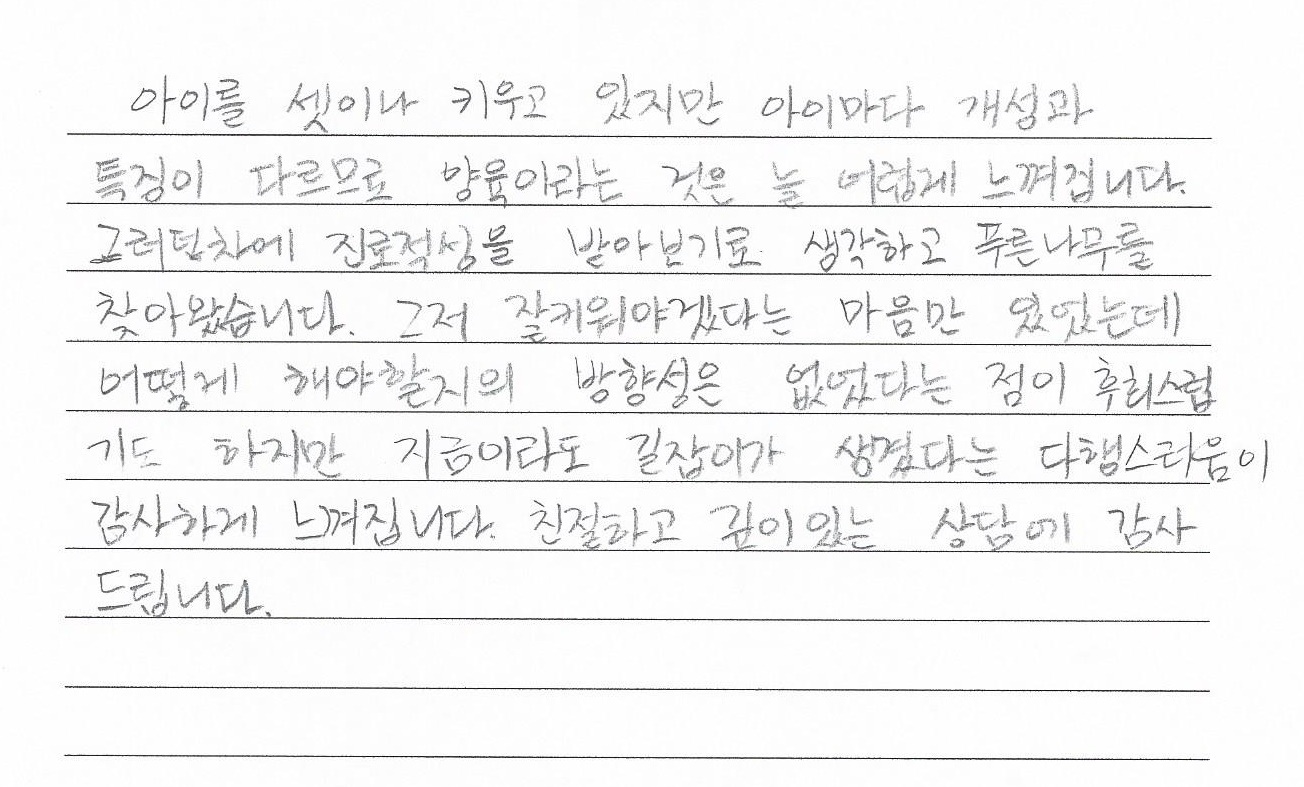 아이를 셋이나 키우고 있지만 아이마다 개성과
특징이 다르므로 양육이라는 것은 늘 어렵게 느껴집니다.
그러던차에 진로적성을 받아보기로 생각하고 푸른나무를
찾아왔습니다. 그저 잘키워야겠다는 마음만 있었는데
어떻게 해야할지의 방향성은 없었다는 점이 후회스럽
기도 하지만 지금이라도 길잡이가 생겼다는 다행스러움이
감사하게 느껴집니다. 친절하고 깊이있는 상담에 감사
드립니다.